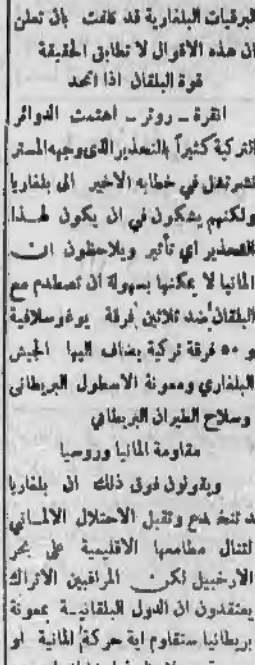 البرقيات البلغارية قد كلفت بان تعلن
ان هذه الاقوال لا تطابق الحقيقة
قوة البلقان اذا اتحد
انقرة – روتر – اهتمت الدوائر
التركية كثيراً بالتحذير الذى وجهه المستر
تشرتشل في خطابه الاخير الى بلغاريا
ولكنهم يشكون في ان يكون لهذا
التحذير اي تأثير ويلاحظون ان
المانيا لا يمكنها بسهولة ان تصطدم مع
البلقان ضد ثلاثين فرقة يوغوسلافية
و ٥٠ فرقة تركية يضاف اليها الجيش
البلغاري ومعونة الاسطول البريطانى
وسلاح الطيران البريطاني
مقاومة المانيا وروسيا
ويقولون فوق ذلك ان بلغاريا
قد تنخدع وتقبل الاحتلال الالمـاني
لتنال مطامعها الاقليمية على بحر
الارخبيل لكن المراقبين الاتراك
يعتقدون ان الدول البلقانيـة بمعونة
بريطانيا ستقاوم اية حركة المانية او